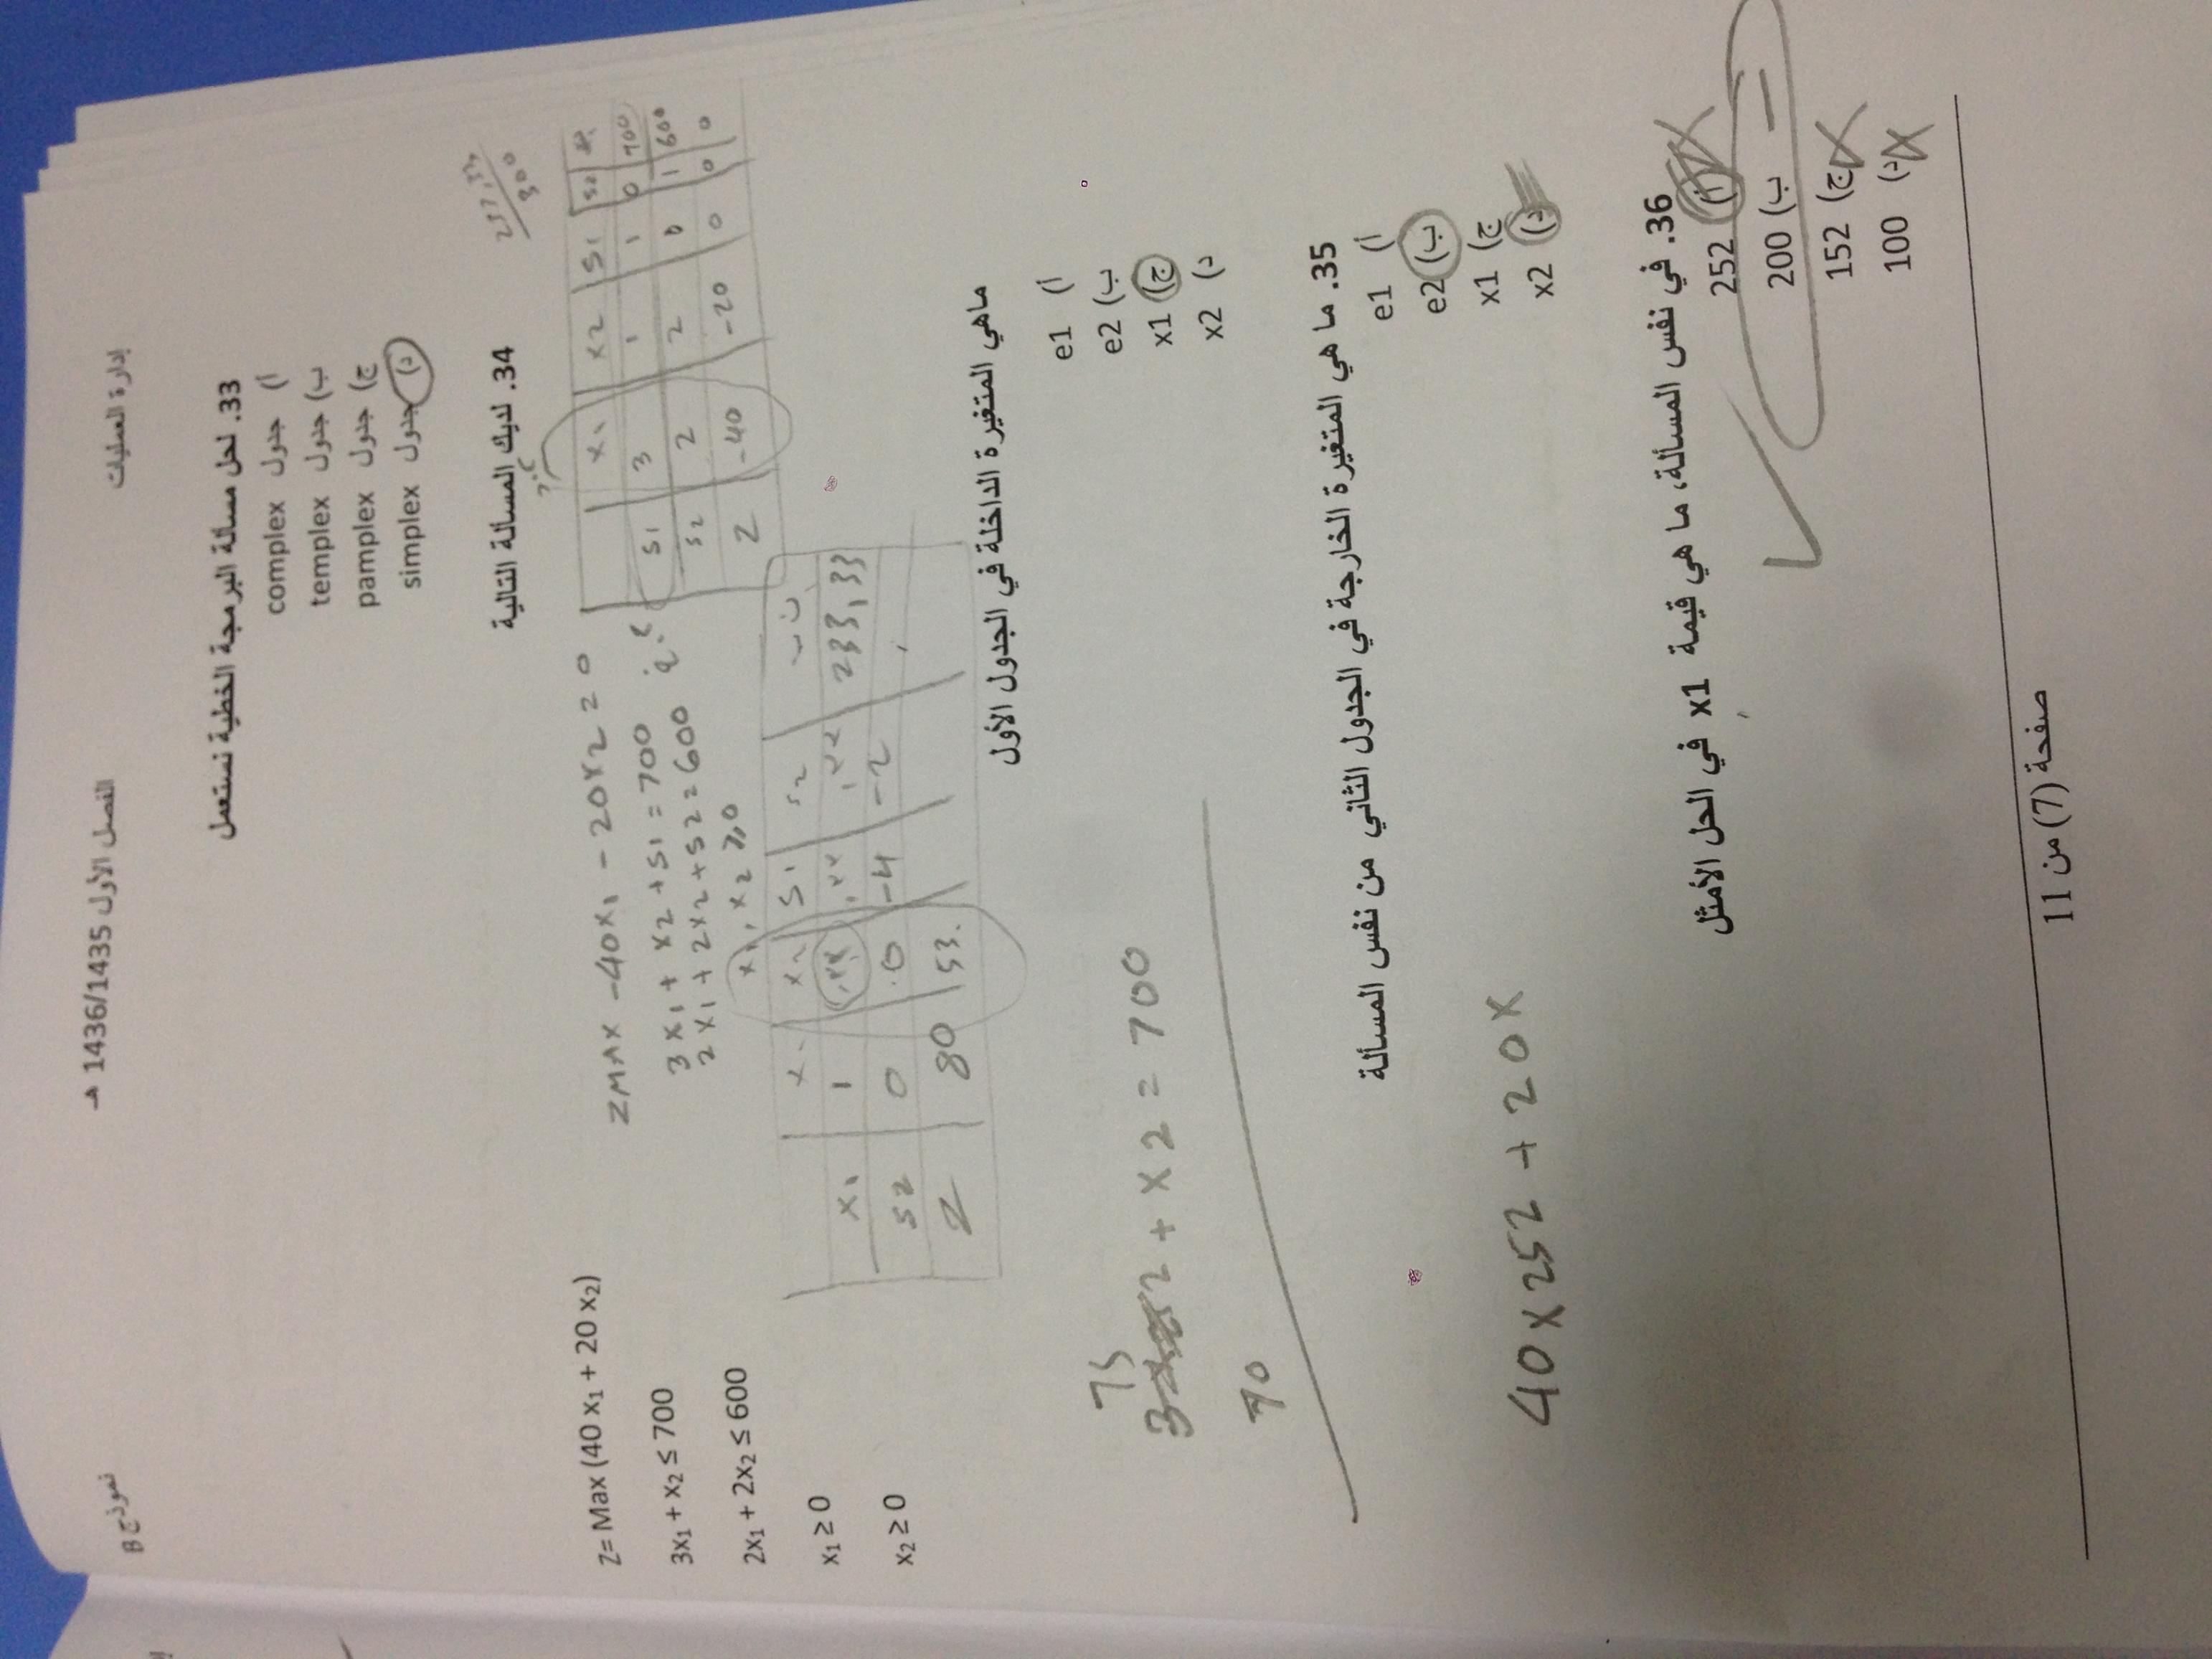 نموذج B
الفصل الأول 1436/1435 هـ
إدارة العمليات
33. لحل مسألة البرمجة الخطية نستعمل
أ) جدول complex
ب) جدول templex
ج) جدول pamplex
د) جدول simplex
34. لديك المسألة التالية
Z= Max (40 x₁ + 20 x₂)
3x₁ + x₂ ≤ 700
2x₁ + 2x₂ ≤ 600
x₁ ≥ 0
x₂ ≥ 0
ZMAX -40x1 - 20x2 = 0
3x1 + x2 + s1 = 700
2x1 + 2x2 + s2 = 600
x1, x2 ≥ 0
x1 x2 s1 s2
s1 3 1 1 0 700
s2 2 2 0 1 600
Z -40 -20 0 0 0
s1 s2
x1 1 233,33
s2 0 -4 -2
Z 80 53.
ماهي المتغيرة الداخلة في الجدول الأول
أ) e1
ب) e2
ج) x1
د) x2
75
+ x2 = 700
70
35. ما هي المتغيرة الخارجة في الجدول الثاني من نفس المسألة
أ) e1
ب) e2
ج) x1
د) x2
40 x 252 + 20x
36. في نفس المسألة، ما هي قيمة x1 في الحل الأمثل
أ) 252
ب) 200
ج) 152
د) 100
صفحة (7) من 11